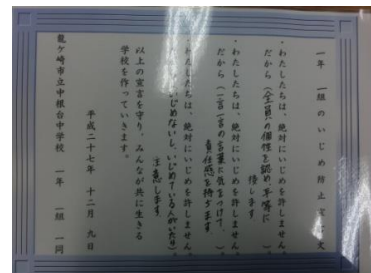 一年 一組のいじめ防止宣言文
・わたしたちは、絶対にいじめを許しません。
だから(全員の個性を認め、平等に
接します )。
・わたしたちは、絶対にいじめを許しません。
だから(一言一言の言葉に気をつけて、
責任感を持ちます )。
・わたしたちは、絶対にいじめを許しません。
だから(いじめないし、いじめている人がいたら
注意します )。
以上の宣言を守り、みんなが共に生きる
学校を作っていきます。
平成二十七年 十二月 九日
龍ケ崎市立中根台中学校 一年 一組一同